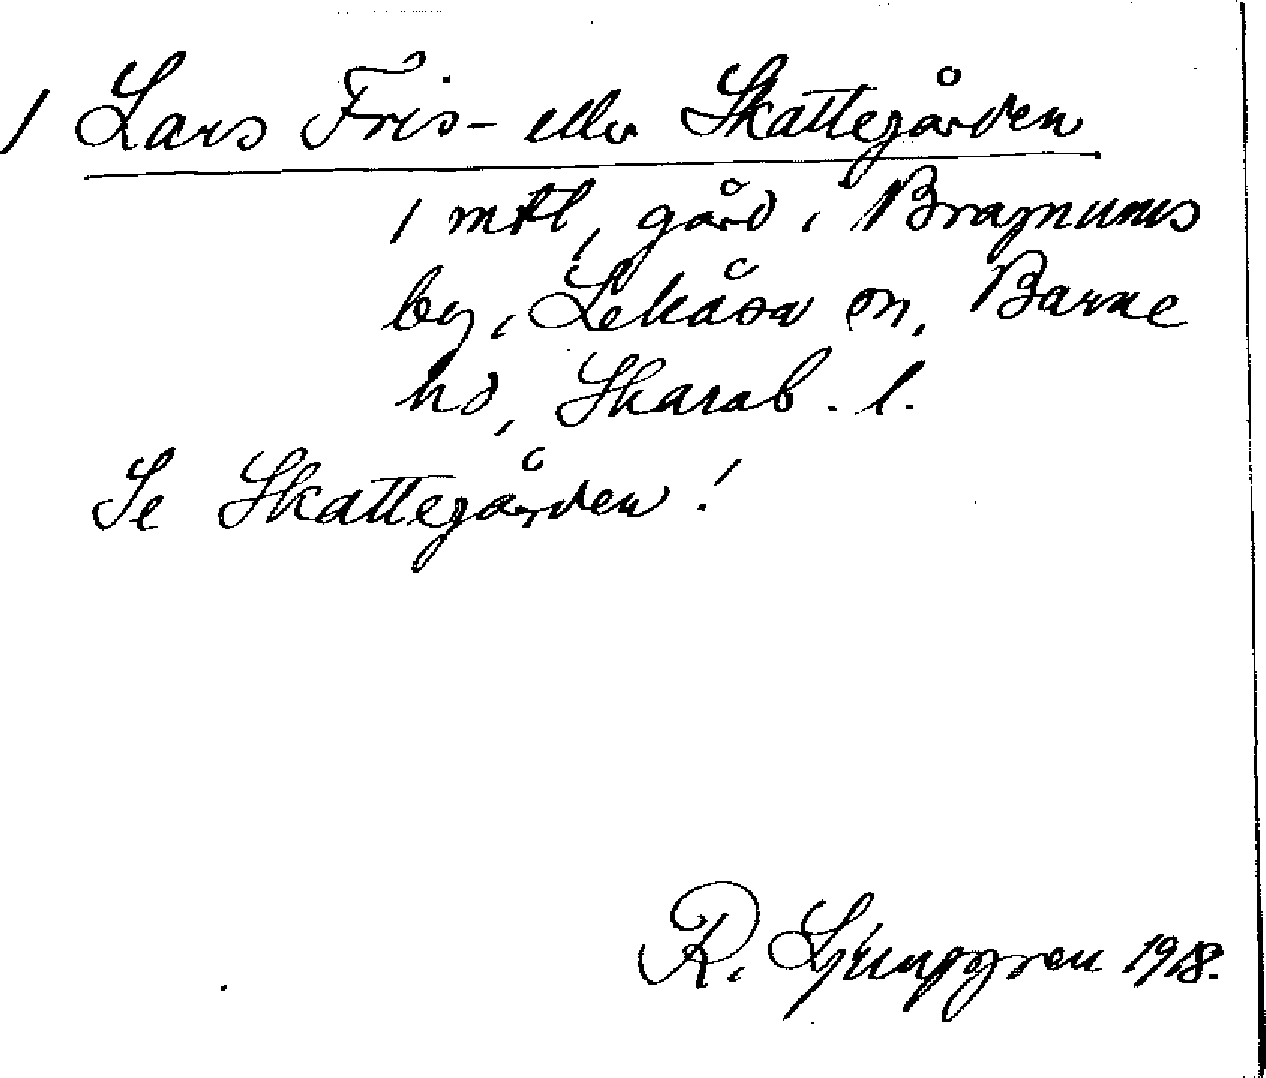 / Lars Fris- eller Skattegården
1 mtl, gård i Bragnums
by, Lekåsa sn, Barne
hd, Skarab. l.
Se Skattegården!
R. Ljunggren 1918.